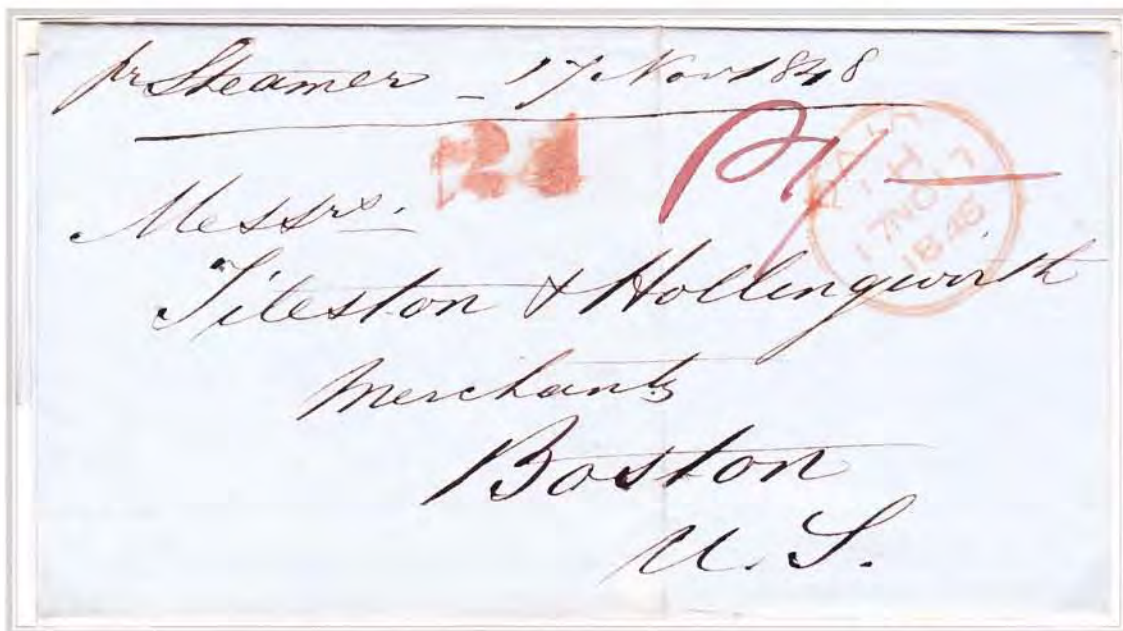 pr Steamer - 17 Nov 1848
24
PAID
17 NO 17
1848
Messrs.
Tileston & Hollingwirth
Merchants
Boston
U. S.